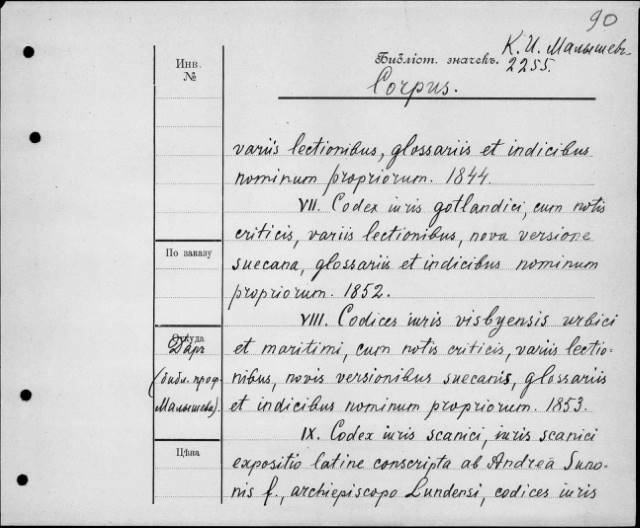 90
К. И. Малышевъ
Инв.
№
Библіот. значекъ.
2255.
Corpus.
variis lectionibus, glossariis et indicibus
nominum propriorum. 1844.
VII. Codex iuris gotlandici, cum notis
criticis, variis lectionibus, nova versione
По заказу
suecana, glossariis et indicibus nominum
propriorum. 1852.
VIII. Codices iuris visbyensis urbici
Откуда
Даръ
et maritimi, cum notis criticis, variis lectio-
(библ. проф.
nibus, novis versionibus suecanis, glossariis
Малышева).
et indicibus nominum propriorum. 1853.
IX. Codex iuris scanici, iuris scanici
Цѣна
expositio latine conscripta ab Andrea Suno-
nis f., archiepiscopo Lundensi, codices iuris